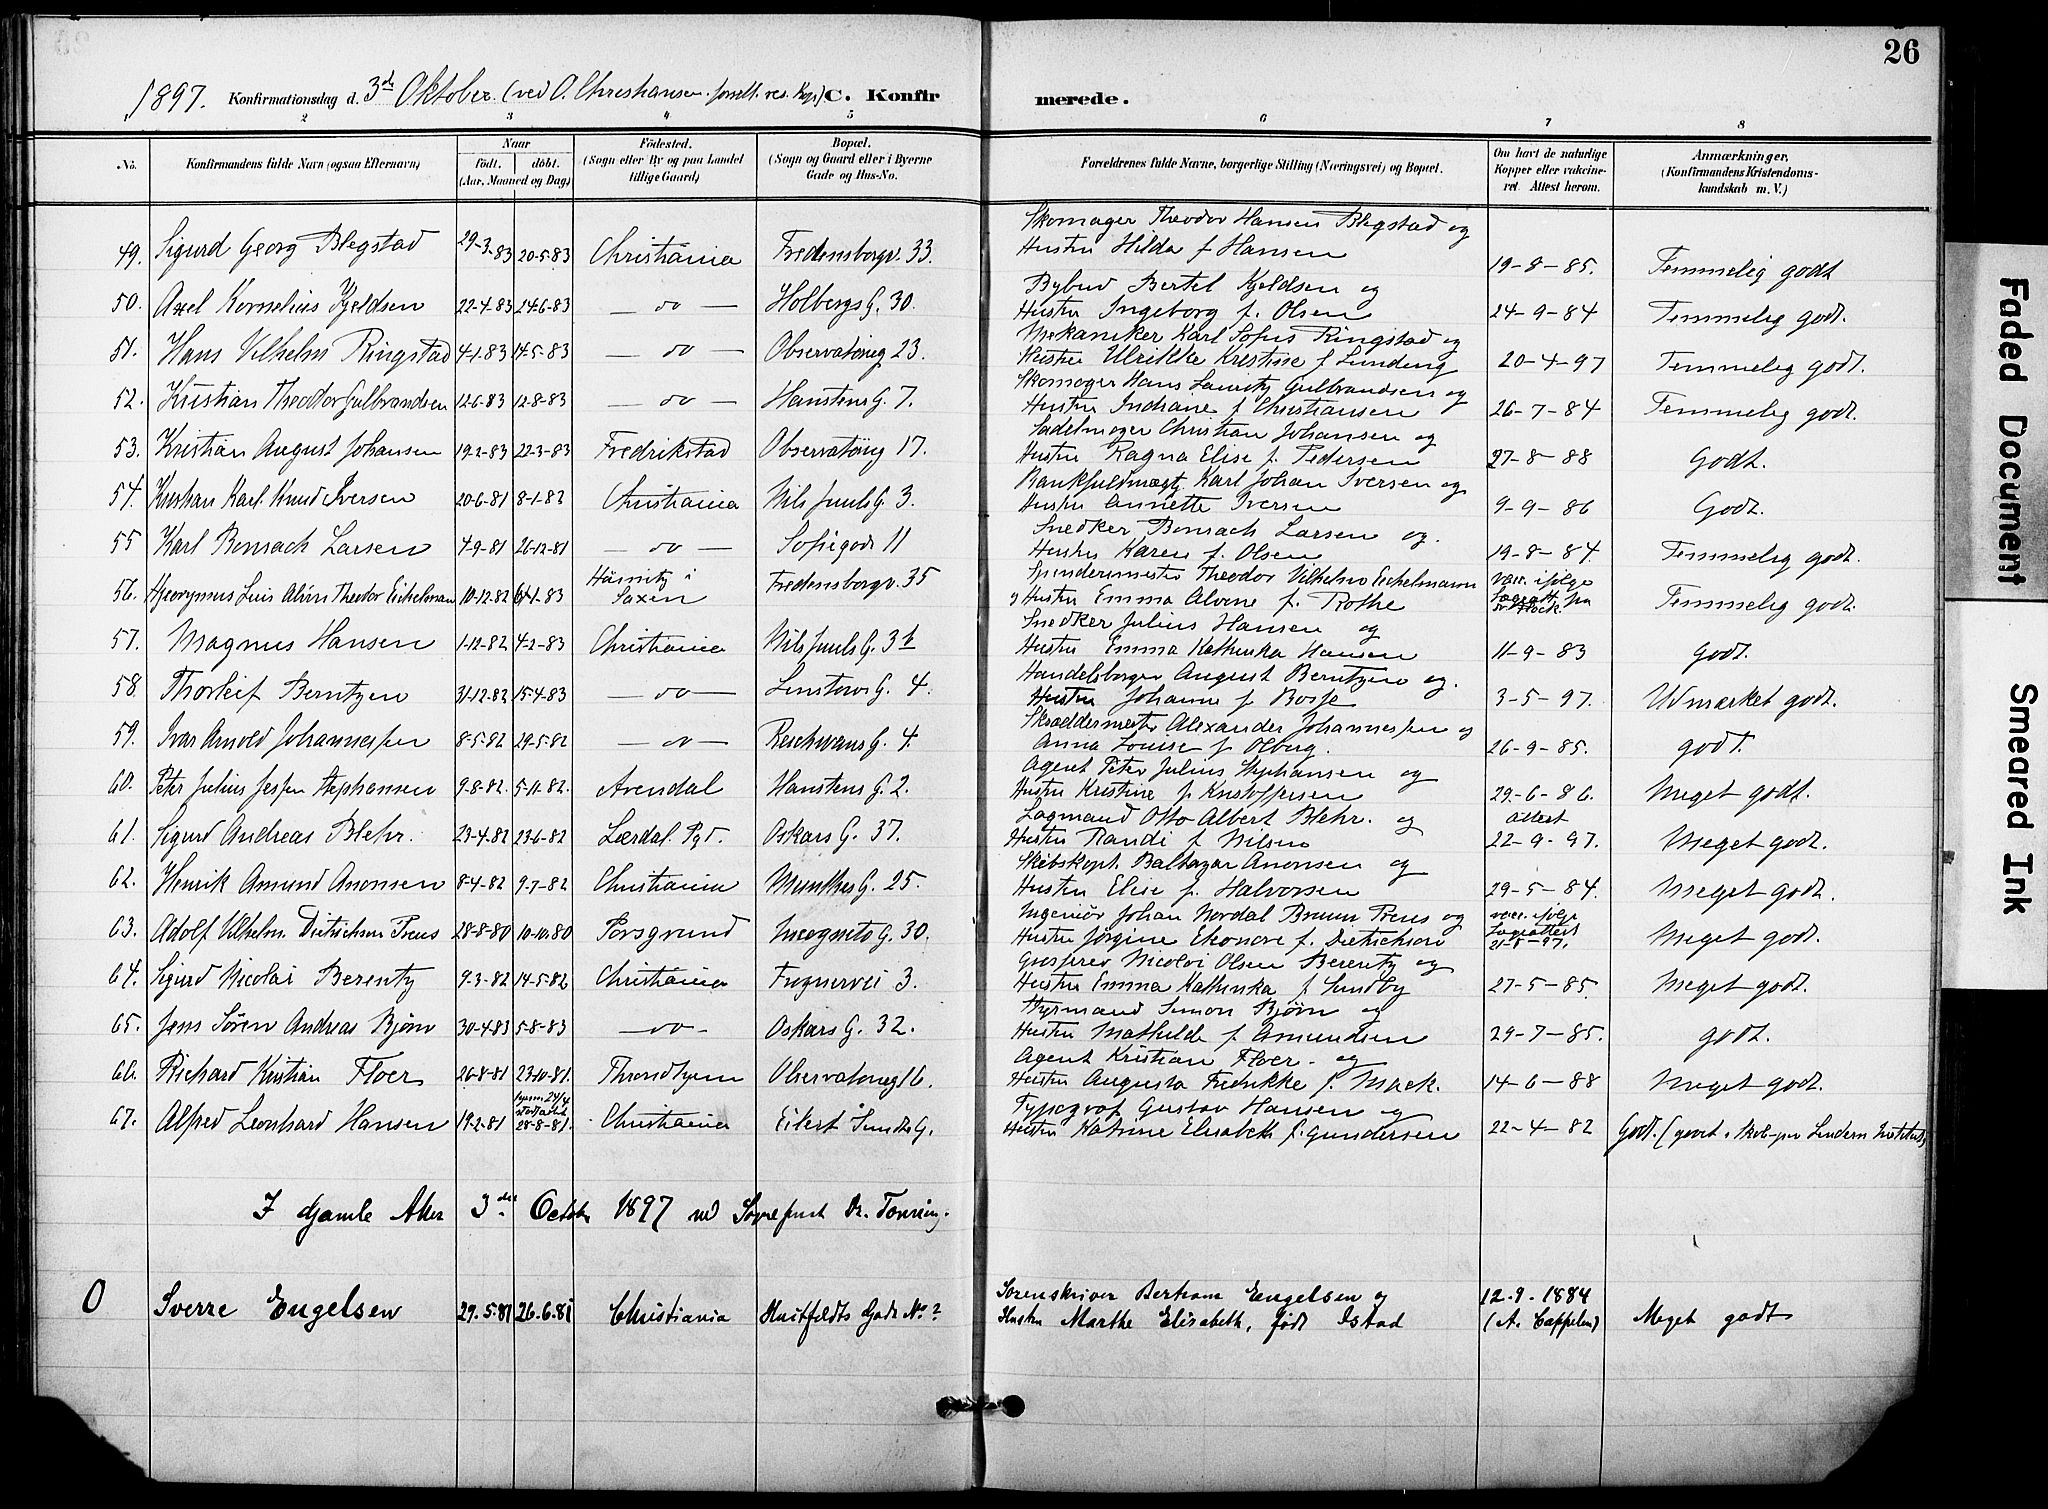 26
1897. Konfirmationsdag d. 3die Oktober (ved O. Christiansen. res. Kap) C. Konfirmerede.
1 2 3 4 5 6 7 8
No. Konfirmandens fulde Navn (ogsaa Efternavn) Naar født. døbt. (Aar, Maaned og Dag) Fødested. (Sogn eller By og paa Landet tillige Gaard) Bopæl. (Sogn og Gaard eller i Byerne Gade og Hus-No. Forældrenes fulde Navne, borgerlige Stilling (Næringsvei) og Bopæl. Om havt de naturlige Kopper eller vakcineret. Attest herom. Anmærkninger. (Konfirmandens Kristendomskundskab m. V.)
49. Sigurd Georg Blegstad 29-3-83 20-5-83 Christiania Fredensborgv. 33. Skomager Theodor Hansen Blegstad og Hustru Hilda f. Hansen 19-8-85. Temmelig godt
50. Axel Kornelius Kjeldsen 22-4-83 24-6-83 — do — Holbergs G. 30. Bybud Bertel Kjeldsen og Hustru Ingeborg f. Olsen 24-9-84 Temmelig godt.
51. Hans Vilhelm Ringstad 4-1-83 14-5-83 — do — Observatorieg 23. Mekaniker Karl Sofus Ringstad og Hustru Ulrikke Kristine f. 20-4-97 Temmelig godt.
52. Kristian Theodor Gulbrandsen 12-6-83 12-8-83 — do — Hanstens G. 7. Skomager Hans Lauritz Gulbrandsen og Hustru Indiane f. Christiansen 26-7-84 Temmelig godt.
53. Kristian August Johansen 19-2-83 22-3-83 Fredrikstad Observatorieg 17. Sadelmager Christian Johansen og Hustru Ragna Elise f. Pedersen 27-8-88 Godt.
54. Kristian Karl Knud Iversen 20-6-81 8-1-82 Christiania Nils Juuls G. 3. Bankfuldmægt. Karl Johan Iversen og Hustru Annette Iversen 9-9-86 Godt.
55 Karl Bonsach Larsen 4-9-81 26-12-81 — do — Sofiegade 11 Snedker Bonsach Larsen og. Hustru Karen f. Olsen 19-8-84. Temmelig godt.
56. Hjeronymus Luis Alvin Theodor Eichelman 10-12-82 -1-83 i Saxen Fredensborgv. 35 Spinderimester Theodor Vilhelm Eichelmann og Hustru Emma Alvine f. Rothe vacc. ifølge fra Temmelig godt.
57. Magnus Hansen 1-12-82 4-2-83 Christiania Nils Juuls G. 3b Snedker Julius Hansen og Hustru Emma Kathinka Hansen 11-9-83 godt.
58. Thorleif Berntzen 31-12-82 15-4-83 — do — Linstows G. 4. Handelsborger August Berntzen og. Hustru Johanne f. Bosse 3-5-97. Udmærket godt.
59. Ivar Arnold Johannessen 8-5-82 29-5-82 — do — G. 4. Skræddermester Alexander Johannessen og Anna Louise f. Olberg. 26-9-85. godt.
60. Peter Julius Jespen Stephansen 9-8-82. 5-11-82. Arendal Hanstens G. 2. Agent Peter Julius Stephansen og Hustru Kristine f. Kristoffersen 29-6-86. Meget godt.
61. Sigurd Andreas Blehr. 23-4-82 23-6-82 Lærdal. Pgd. Oskars G. 37. Lagmand Otto Albert Blehr. og Hustru Randi f. Nilsen Attest 22-9-97. Meget godt.
62. Henrik Amund Anonsen 8-4-82 9-7-82 Christiania Munthes G. 25. Skibskapt. Baltazar Anonsen og Hustru Elise f. Halvorsen 29-5-84. Meget godt.
63. Adolf Vilhelm Dietrichsen Preus 28-8-80 10-10-80 Porsgrund Incognito G. 30. Ingeniör Johan Nordal Bruun Preus og Hustru Jørgine Elenore f. Dietrichson vacc. ifølge Lægeattest 21-8-97. Meget godt.
64. Sigurd Nicolai Berentz 9-3-82 14-5-82 Christiania Frognervei 3. Nicolai Olsen Berentz og Hustru Emma Kathinka f. Sundby 27-5-85. Meget godt.
65. Jens Sören Andreas Bjørn 30-4-83 5-8-83 — do — Oskars G. 32. Styrmand Simon Bjørn og Hustru Mathilde f. Amundsen 29-7-85. godt.
66. Richard Kristian Floer 26-8-81 23-10-81. Throndhjem Observatorieg 16. Agent Kristian Floer. og Hustru Augusta Fredrikke f. Mack. 14-6-88 Meget godt.
67. Alfred Leonhard Hansen 19-2-81 hjem. 24/4 stadfæstet 28-8-81. Christiania Eilert Sundts G. Typograf Gustav Hansen og Hustru Katrine Elisabeth f. Gundersen 22-4-82 Godt. (
I Gamle Aker 3die October 1897 ved Sogneprest
0 Sverre Engelsen 29.5.81 26.6.81 Christiania Huitfeldts Gade No 2 Sorenskriver Bertram Engelsen og Hustru Marthe Elisabeth, født Istad 12-9-1884 (A. Cappelen) Meget godt
Faded Document
Smeared Ink